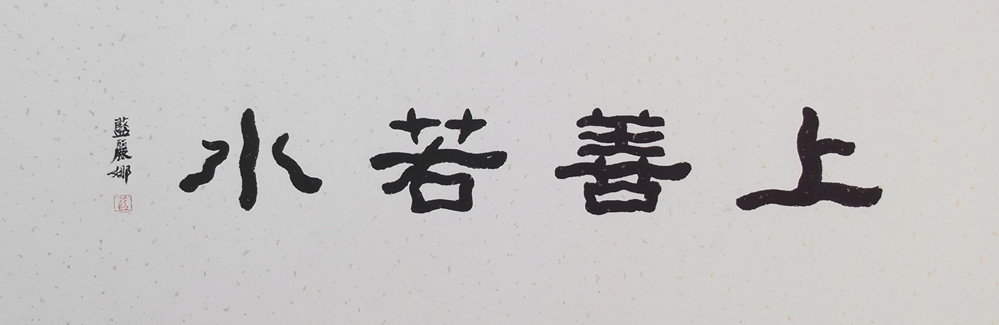 上善若水
藍麗娜